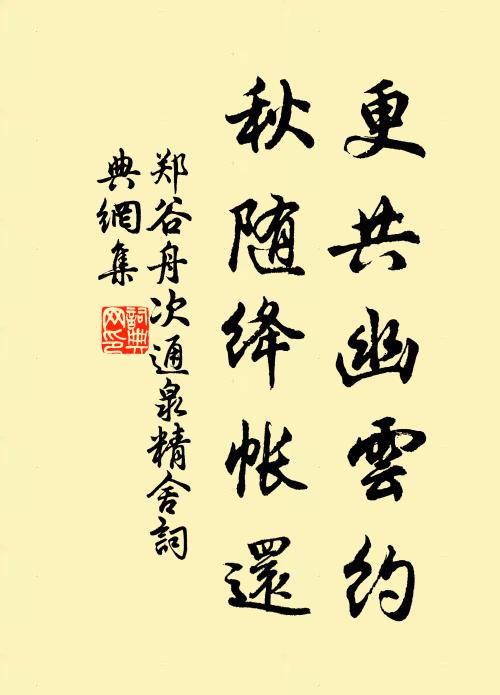 更共幽雲约
秋随绛帐還
郑谷舟次通泉精舍詞
典網集
詞典
网印